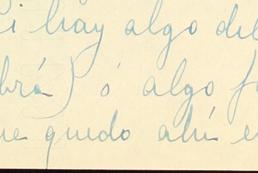 i hay algo de
brá) ó algo
ue quedo ahí e